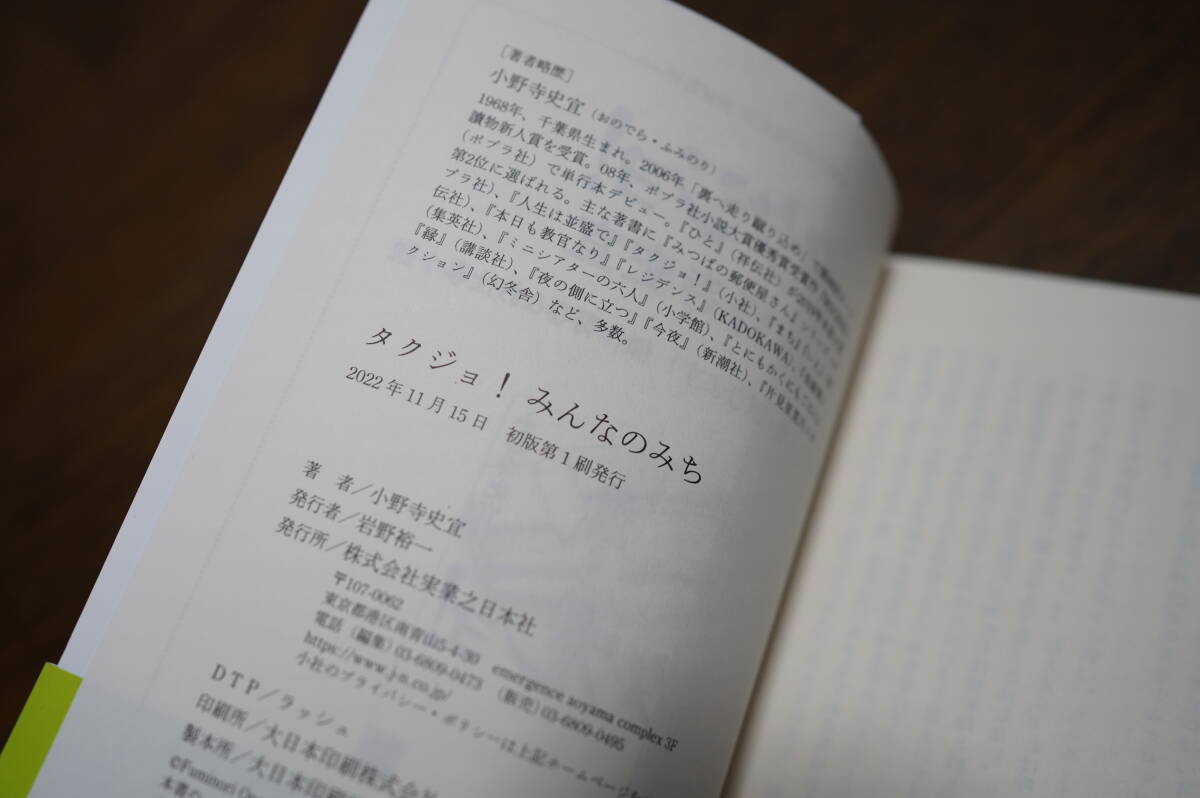 ［著者略歴］
小野寺史宜（おのでら・ふみのり）
1968年、千葉県生まれ。2006年「裏へ走り蹴り込め」で
讀物新人賞を受賞。08年、ポプラ社小説大賞優秀賞受賞作
（ポプラ社）で単行本デビュー。『ひと』（祥伝社）が2019年
第2位に選ばれる。主な著書に『みつばの郵便屋さん』
プラ社）、『人生は並盛で』『タクジョ！』（小社）、『まち』
伝社）、『本日も教官なり』『レジデンス』（KADOKAWA）、
（集英社）、『ミニシアターの六人』（小学館）、『とにもかくにもごはん』
『縁』（講談社）、『夜の側に立つ』『今夜』（新潮社）、『片見里荒川コネ
クション』（幻冬舎）など、多数。
タクジョ！ みんなのみち
2022年11月15日　初版第１刷発行
著　者／小野寺史宜
発行者／岩野裕一
発行所／株式会社実業之日本社
〒107-0062
東京都港区南青山5-4-30　emergence aoyama complex 3F
電話（編集）03-6809-0473　（販売）03-6809-0495
https://www.j-n.co.jp/
小社のプライバシー・ポリシーは上記ホームページ
ＤＴＰ／ラッシュ
印刷所／大日本印刷株式会社
製本所／大日本印刷株
©Fuminori On
本書の